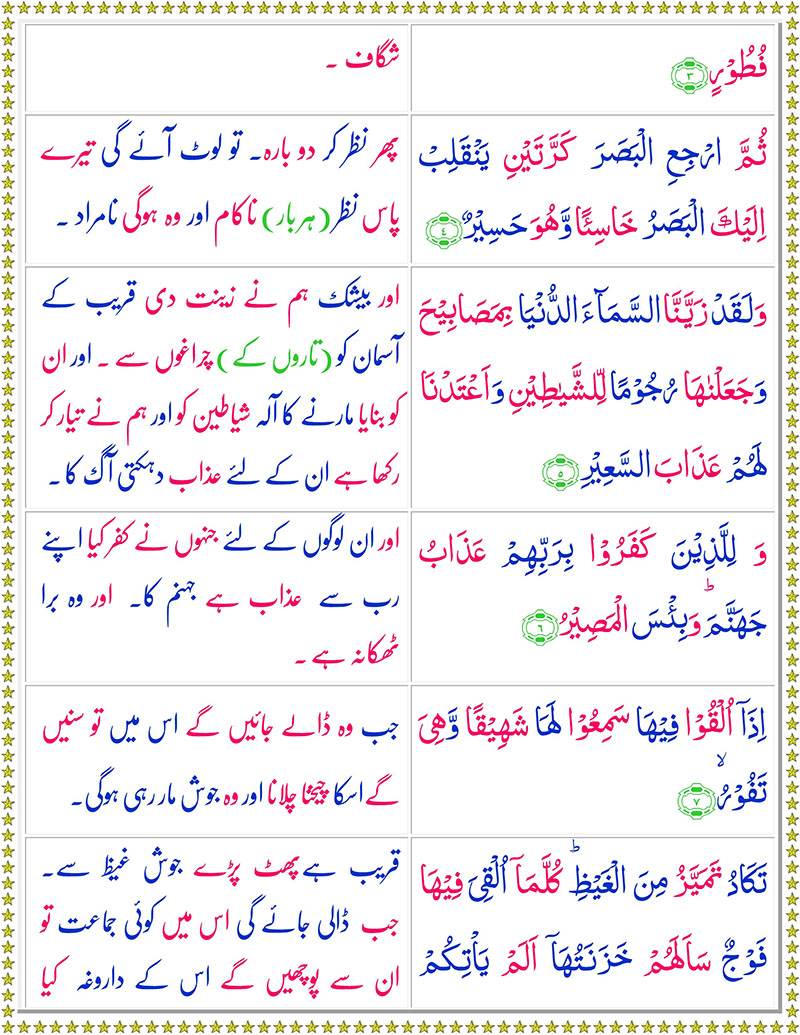 فُطُوۡرٍ ﴿۳﴾
شگاف ۔
ثُمَّ ارۡجِعِ الۡبَصَرَ کَرَّتَیۡنِ یَنۡقَلِبۡ
اِلَیۡکَ الۡبَصَرُ خَاسِئًا وَّهُوَ حَسِیۡرٌ ﴿۴﴾
پھر نظر کر دو بارہ۔ تو لوٹ آئے گی تیرے
پاس نظر (ہربار) ناکام اور وہ ہوگی نامراد ۔
وَلَقَدۡ زَیَّنَّا السَّمَآءَ الدُّنۡیَا بِمَصَابِیۡحَ
وَجَعَلۡنٰهَا رُجُوۡمًا لِّلشَّیٰطِیۡنِ وَاَعۡتَدۡنَا
لَهُمۡ عَذَابَ السَّعِیۡرِ ﴿۵﴾
اور بیشک ہم نے زینت دی قریب کے
آسمان کو (تاروں کے) چراغوں سے ۔ اور ان
کو بنایا مارنے کا آلہ شیاطین کو اور ہم نے تیار کر
رکھا ہے ان کے لئے عذاب دہکتی آگ کا ۔
وَ لِلَّذِیۡنَ کَفَرُوۡا بِرَبِّهِمۡ عَذَابُ
جَهَنَّمَ ؕ وَبِئۡسَ الۡمَصِیۡرُ ﴿۶﴾
اور ان لوگوں کے لئے جنہوں نے کفر کیا اپنے
رب سے عذاب ہے جہنم کا۔ اور وہ برا
ٹھکانہ ہے ۔
اِذَاۤ اُلۡقُوۡا فِیۡهَا سَمِعُوۡا لَهَا شَهِیۡقًا وَّهِیَ
تَفُوۡرُ ۙ﴿۷﴾
جب وہ ڈالے جائیں گے اس میں تو سنیں
گے اسکا چیخنا چلانا اور وہ جوش مار رہی ہوگی۔
تَکَادُ تَمَیَّزُ مِنَ الۡغَیۡظِ ؕ کُلَّمَاۤ اُلۡقِیَ فِیۡهَا
فَوۡجٌ سَاَلَهُمۡ خَزَنَتُهَاۤ اَلَمۡ یَاۡتِکُمۡ
قریب ہے پھٹ پڑے جوش غیظ سے۔
جب ڈالی جائے گی اس میں کوئی جماعت تو
ان سے پوچھیں گے اس کے داروغہ کیا